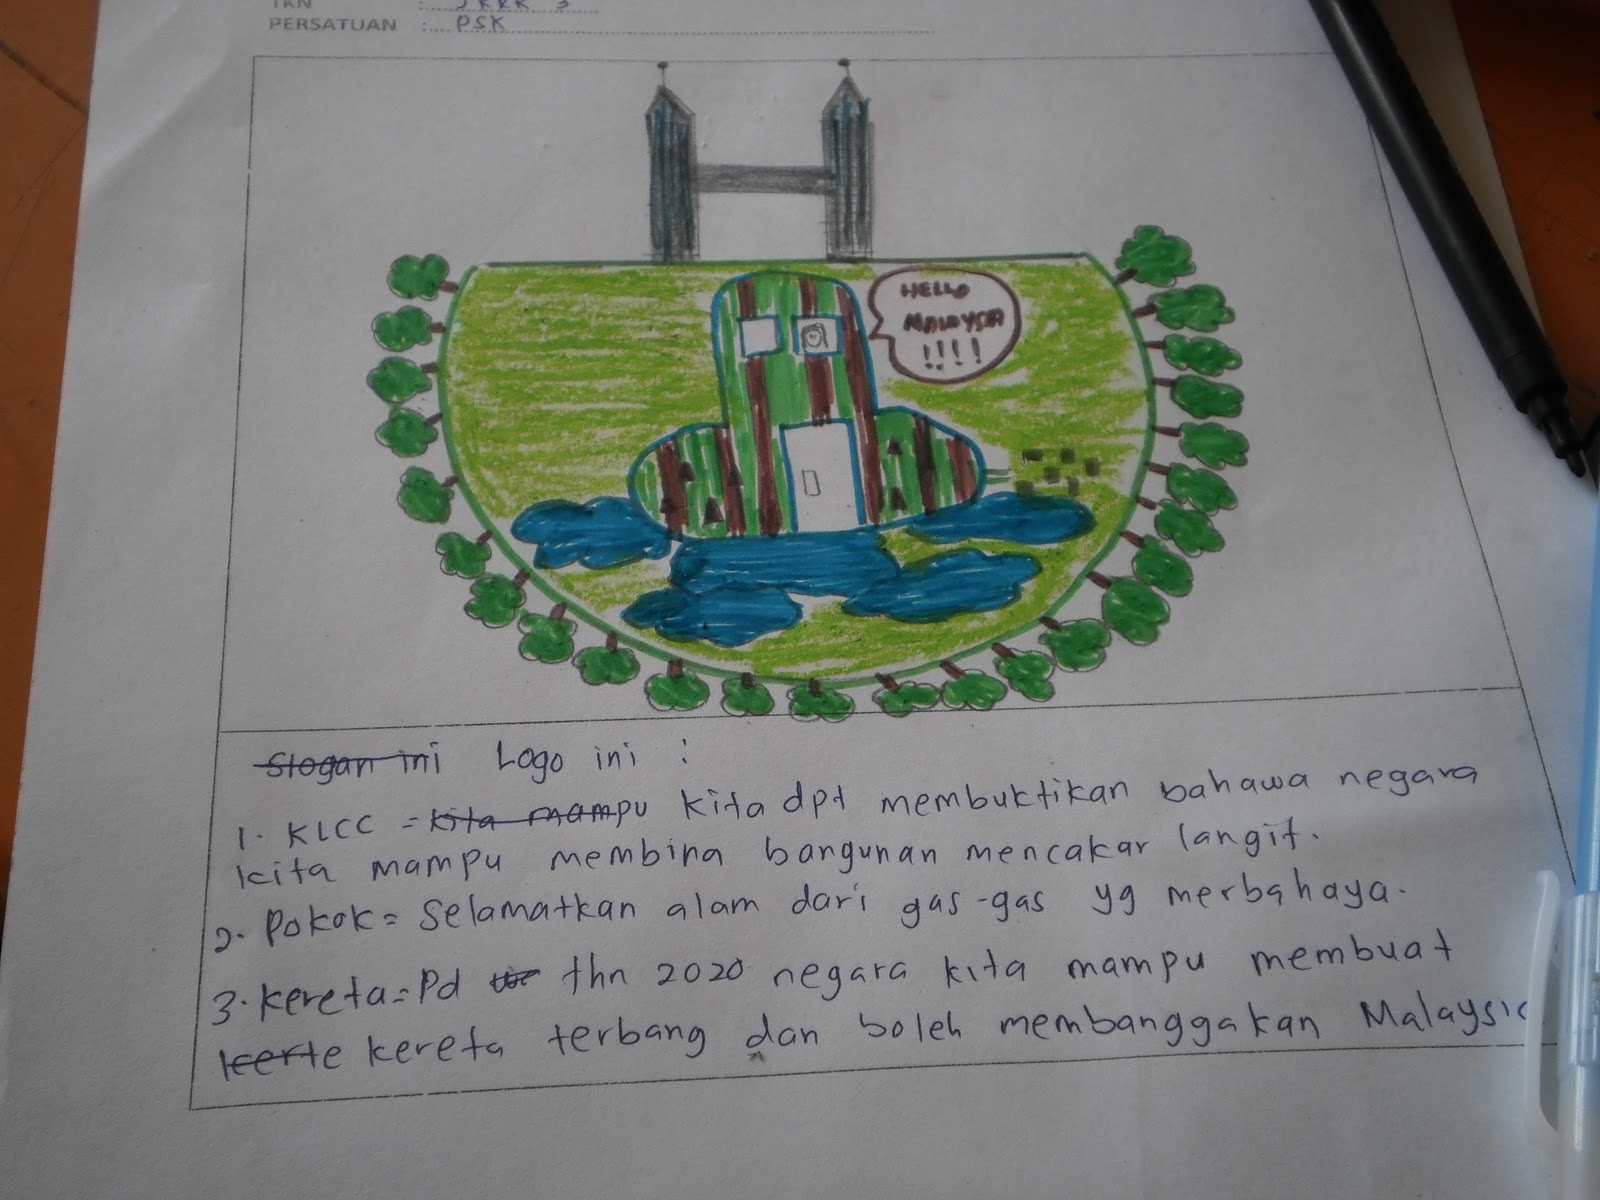 PERSATUAN : PSK
HELLO
MALAYSIA
!!!!
Slogan ini Logo ini :
1. KLCC = kita mampu kita dpt membuktikan bahawa negara
kita mampu membina bangunan mencakar langit.
2. Pokok = Selamatkan alam dari gas-gas yg merbahaya.
3. Kereta = Pd thn 2020 negara kita mampu membuat
kerte kereta terbang dan boleh membanggakan Malaysia